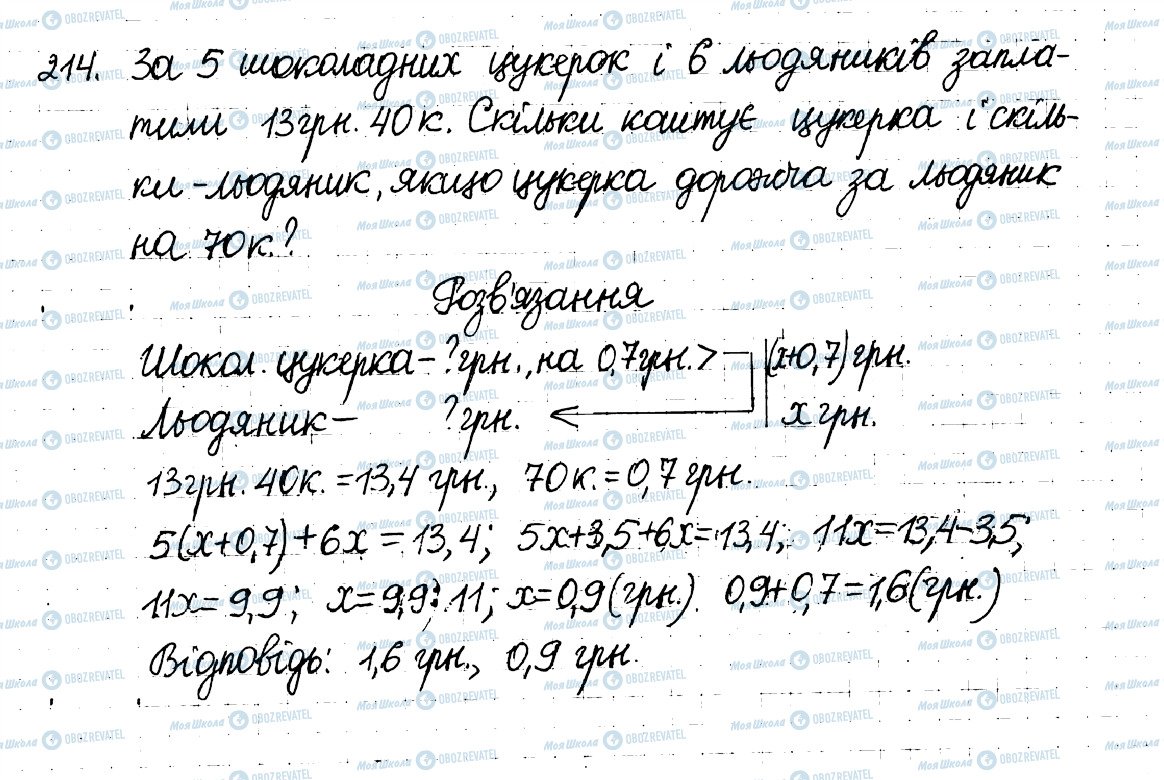 214. За 5 шоколадних цукерок і 6 льодяників запла-
тили 13 грн. 40 к. Скільки коштує цукерка і скіль-
ки - льодяник, якщо цукерка дорожча за льодяник
на 70 к.?
Розв'язання
Шокол. цукерка - ? грн., на 0,7 грн. > (x+0,7) грн.
Льодяник - ? грн. x грн.
13 грн. 40 к. = 13,4 грн., 70 к. = 0,7 грн.
5(x+0,7) + 6x = 13,4; 5x+3,5+6x=13,4; 11x=13,4-3,5;
11x = 9,9; x = 9,9 : 11; x=0,9 (грн.) 0,9+0,7=1,6 (грн.)
Відповідь: 1,6 грн., 0,9 грн.